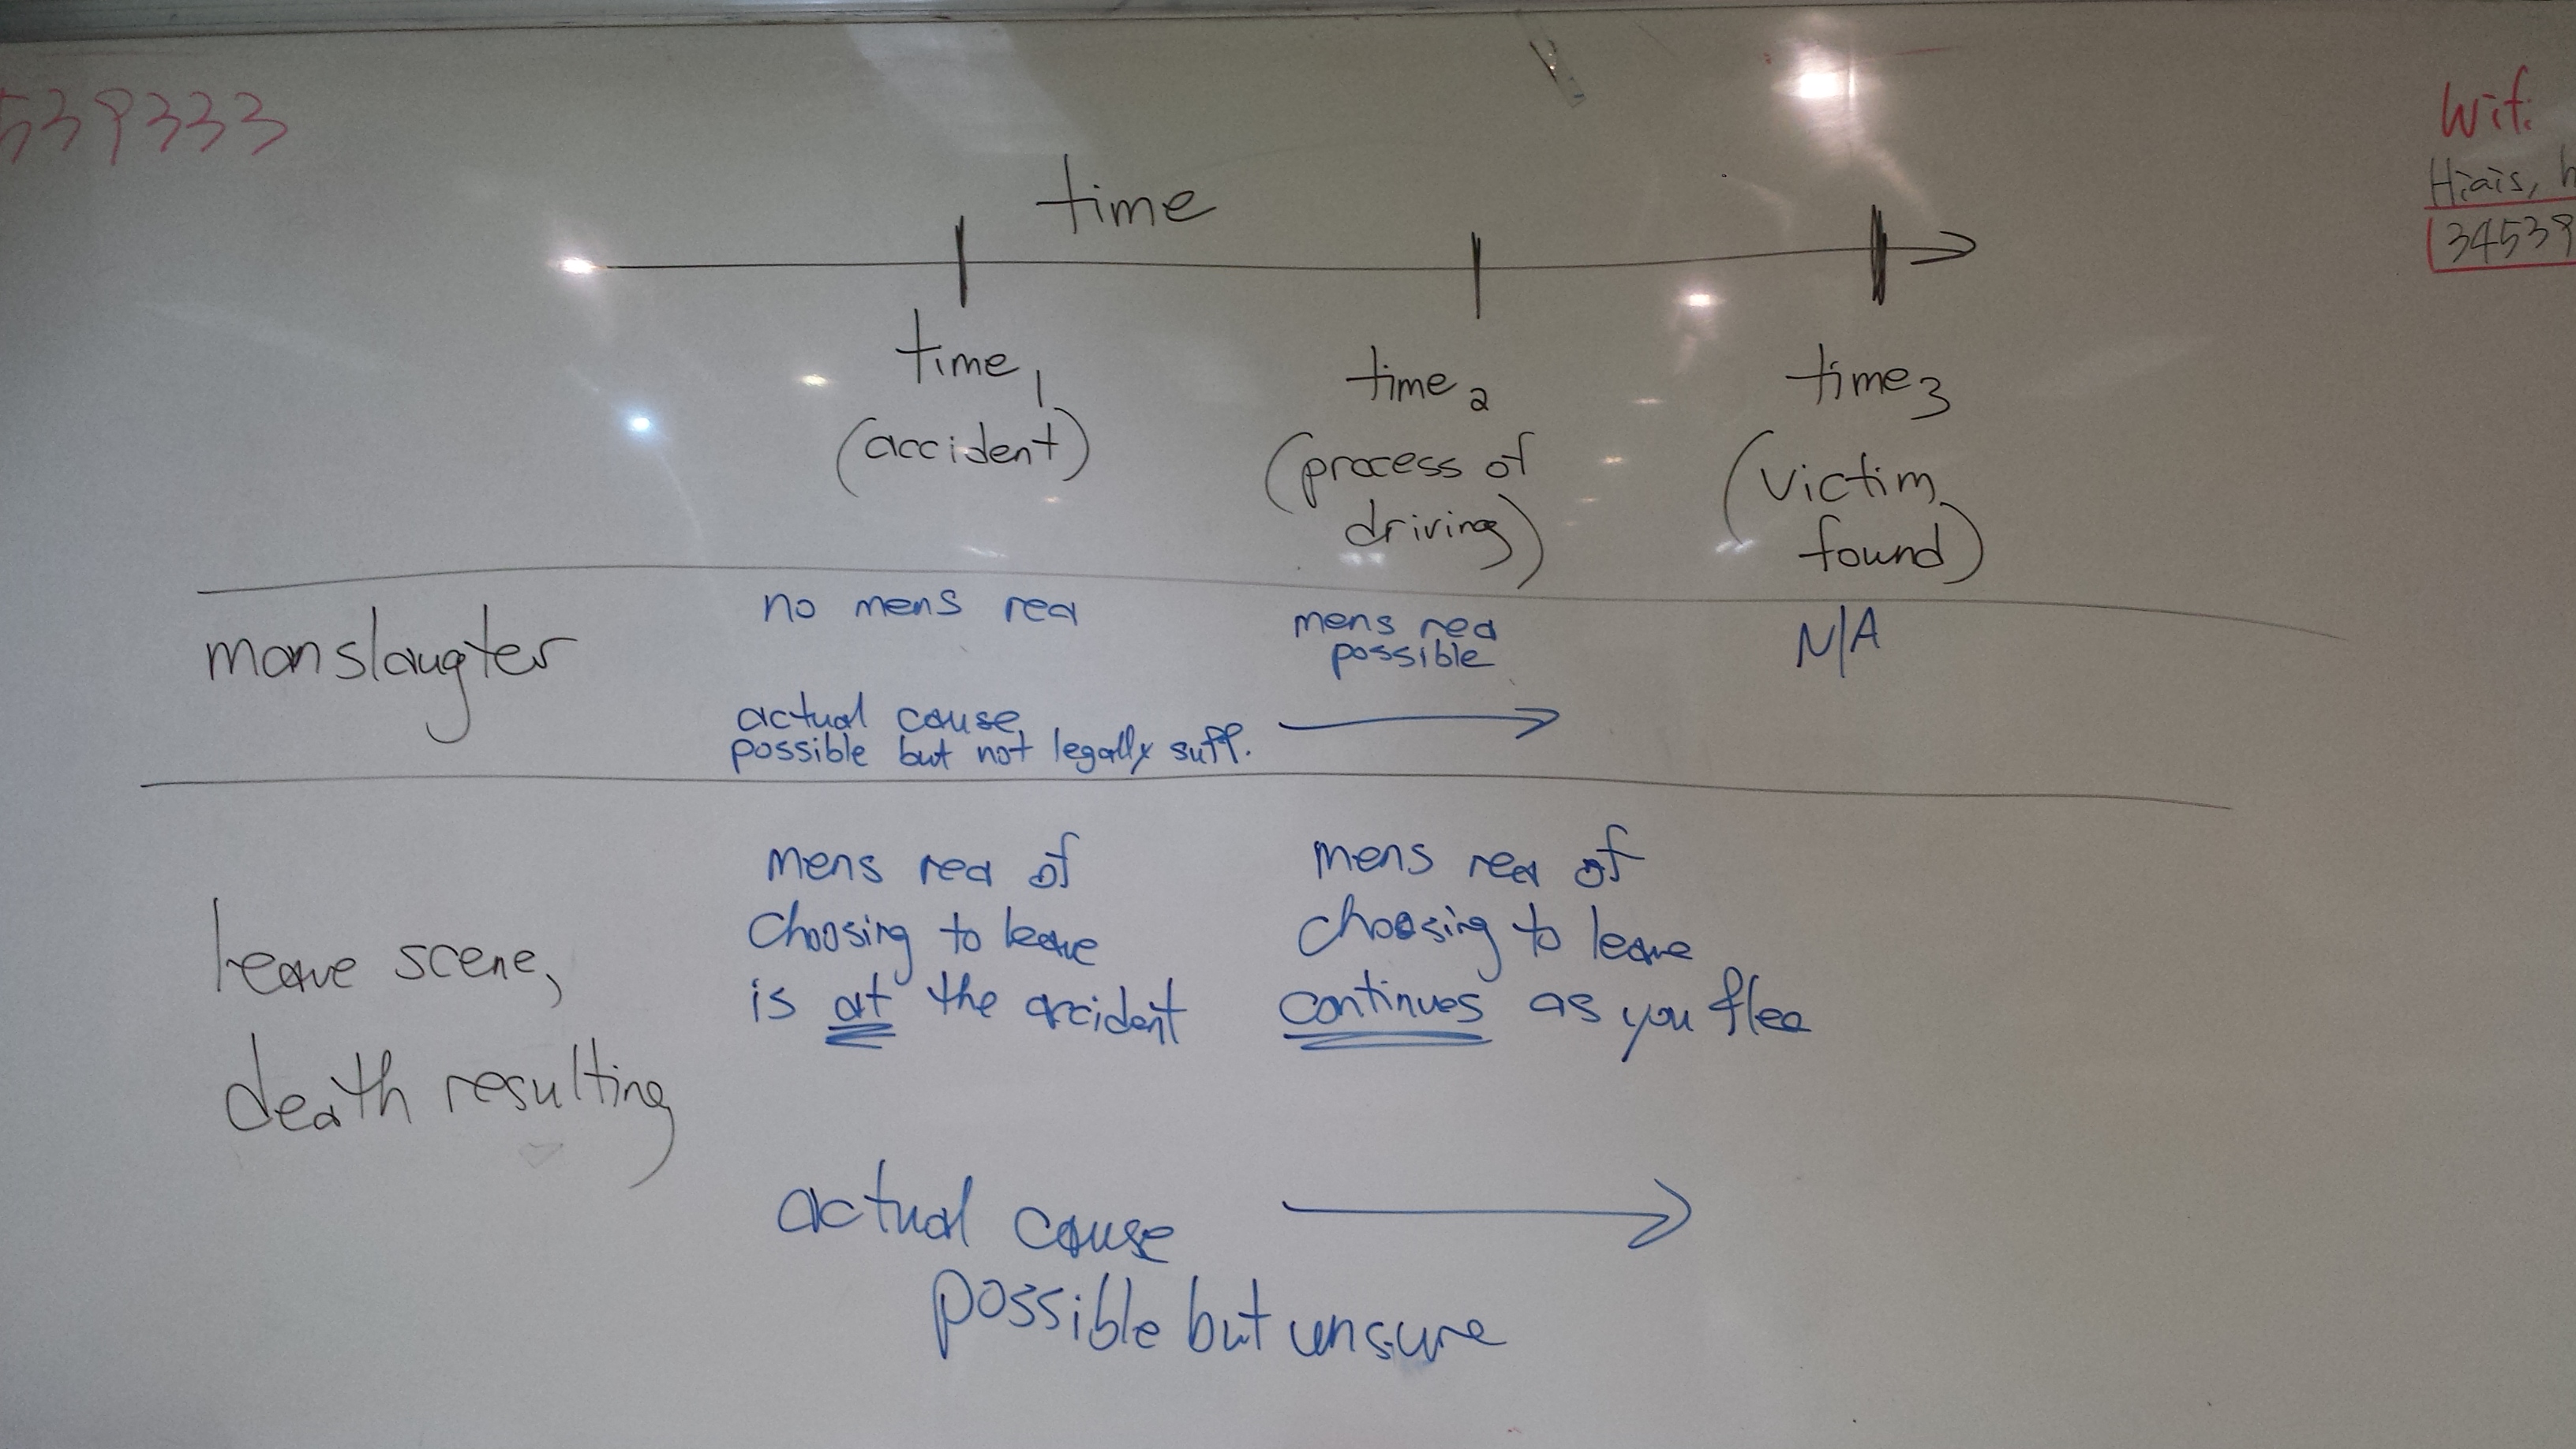 539333
Wifi
Hiais, h
34539
time
time1
(accident)
time2
(process of
driving)
time3
(victim
found)
manslaugter
no mens rea
actual cause
possible but not legally suff.
mens rea
possible
N/A
leave scene,
death resulting
mens rea of
choosing to leave
is at the accident
mens rea of
choosing to leave
continues as you flee
actual cause
possible but unsure